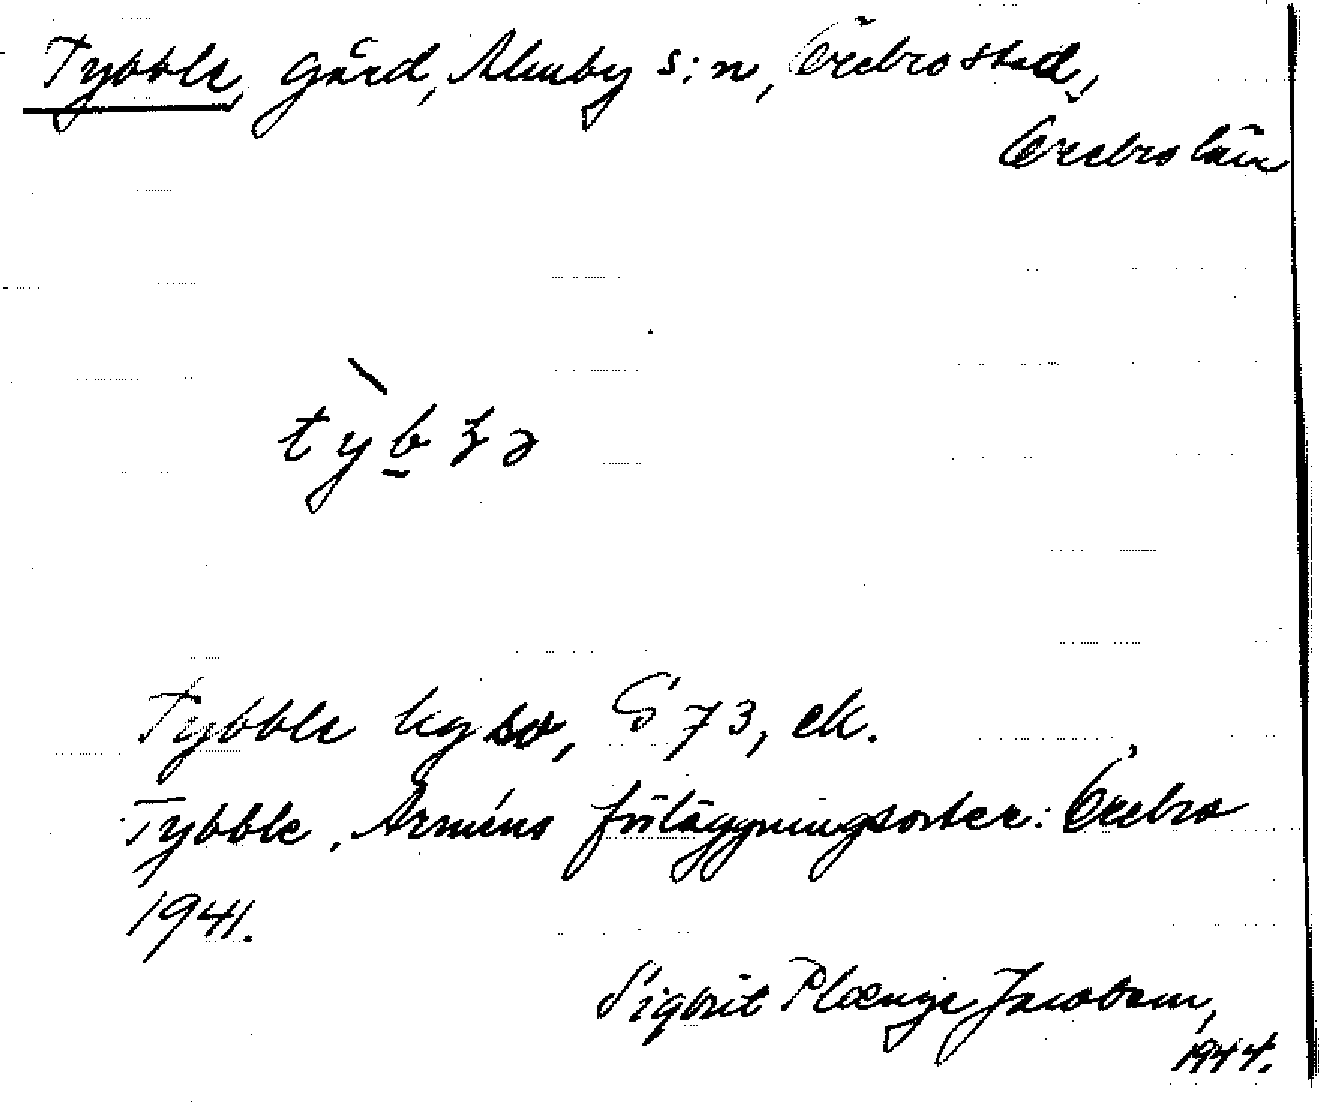 Tybble, gård, Almby s:n, Örebro stad,
Örebro län
tybɮə
Tybble kg by, G 73, ek.
Tybble, Arméns förläggningsorter: Örebro
1941.
Sigbrit Plænge Jacobson,
1944.